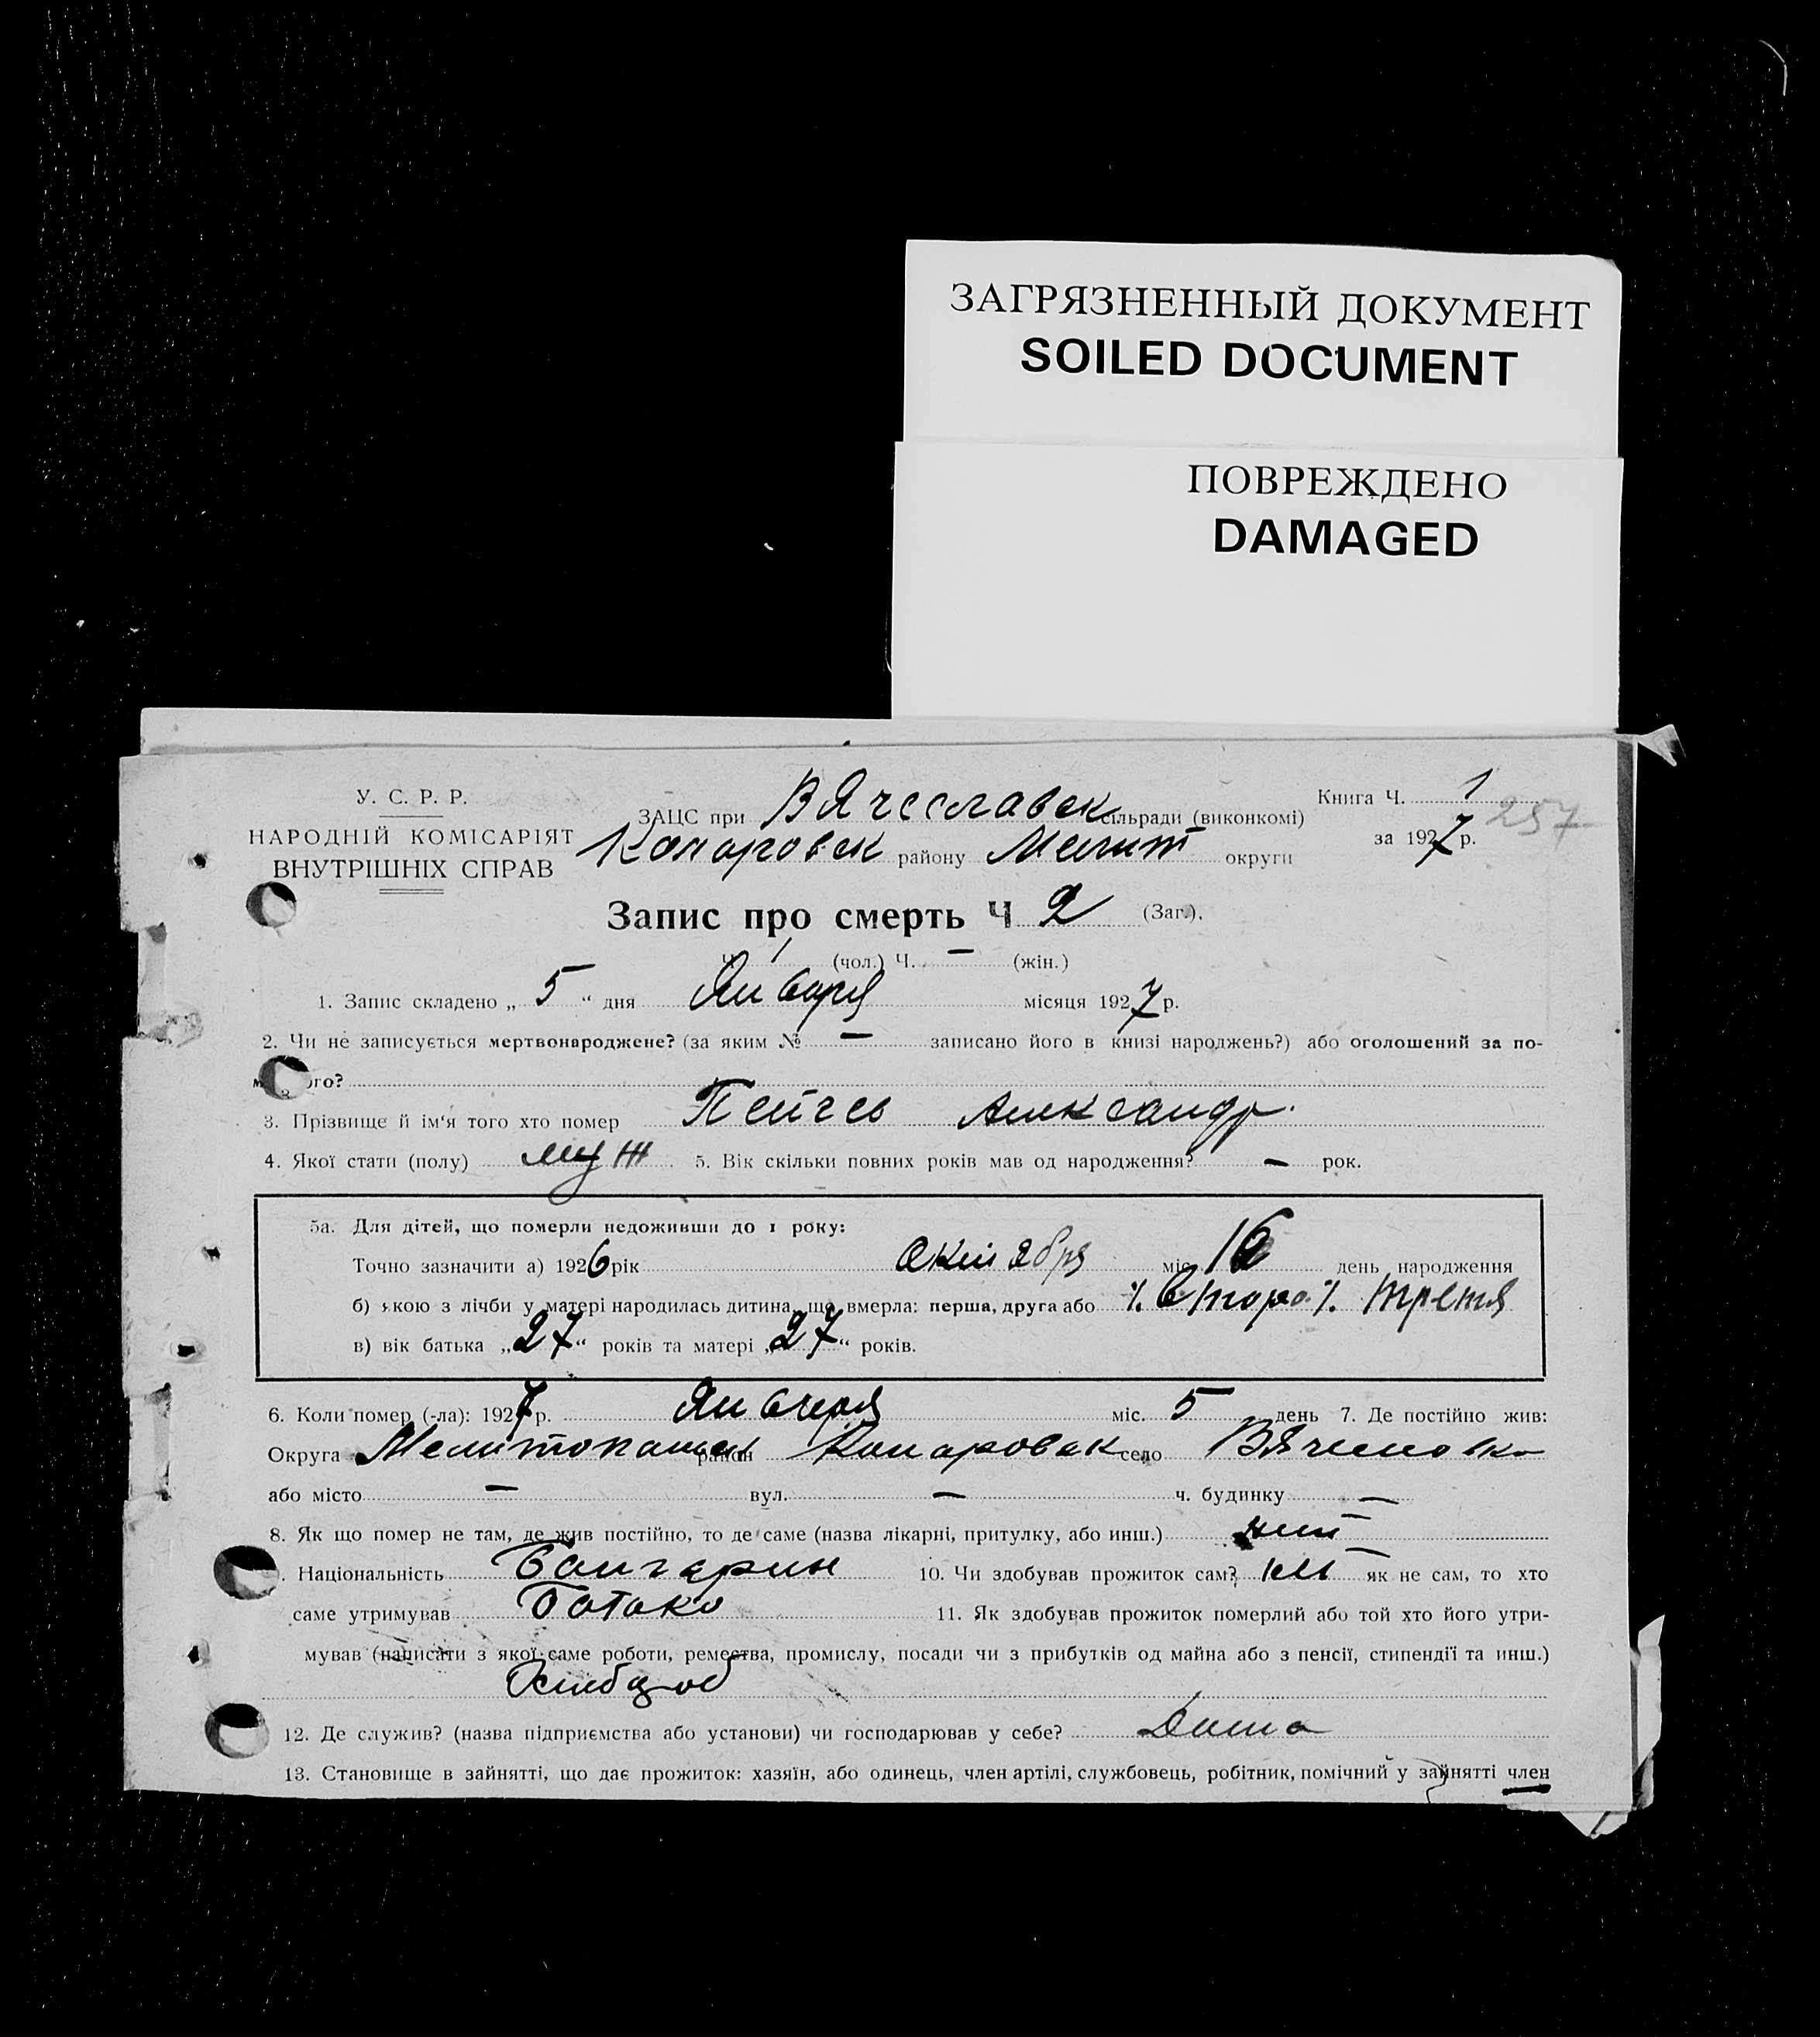 ЗАГРЯЗНЕННЫЙ ДОКУМЕНТ
SOILED DOCUMENT
ПОВРЕЖДЕНО
DAMAGED
У. С. Р. Р.
НАРОДНІЙ КОМІСАРІЯТ
ВНУТРІШНІХ СПРАВ
ЗАЦС при Вячеславск сільради (виконкомі)
района Мелит округи
Книга Ч. 1
за 1927 р.
257
Запис про смерть Ч 2 (Заг.).
Ч. 1 (чол.) Ч. — (жін.)
1. Запис складено „ 5 “ дня Января місяця 1927 р.
2. Чи не записується мертвонароджене? (за яким № — записано його в книзі народжень?) або оголошений за по-
ого?
3. Прізвище й ім'я того хто помер Пейчев Александр.
4. Якої стати (полу) муж 5. Вік скільки повних років мав од народження? — рок.
5а. Для дітей, що померли недоживши до 1 року:
Точно зазначити а) 1926 рік Октября міс. 16 день народження
б) якою з лічби у матері народилась дитина, що вмерла: перша, друга або ٪ втора ٪ третя
в) вік батька „27“ років та матері „27“ років.
6. Коли помер (-ла): 1927 р. Января міс. 5 день 7. Де постійно жив:
Округа район село
або місто — вул. — ч. будинку —
8. Як що помер не там, де жив постійно, то де саме (назва лікарні, притулку, або инш.)
. Національність Болгарин 10. Чи здобував прожиток сам? як не сам, то хто
саме утримував Батько 11. Як здобував прожиток померлий або той хто його утри-
мував (написати з якої саме роботи, ремества, промислу, посади чи з прибутків од майна або з пенсії, стипендії та инш.)
12. Де служив? (назва підприємства або установи) чи господарював у себе? Дома
13. Становище в зайнятті, що дає прожиток: хазяїн, або одинець, член артілі, службовець, робітник, помічний у зайнятті член